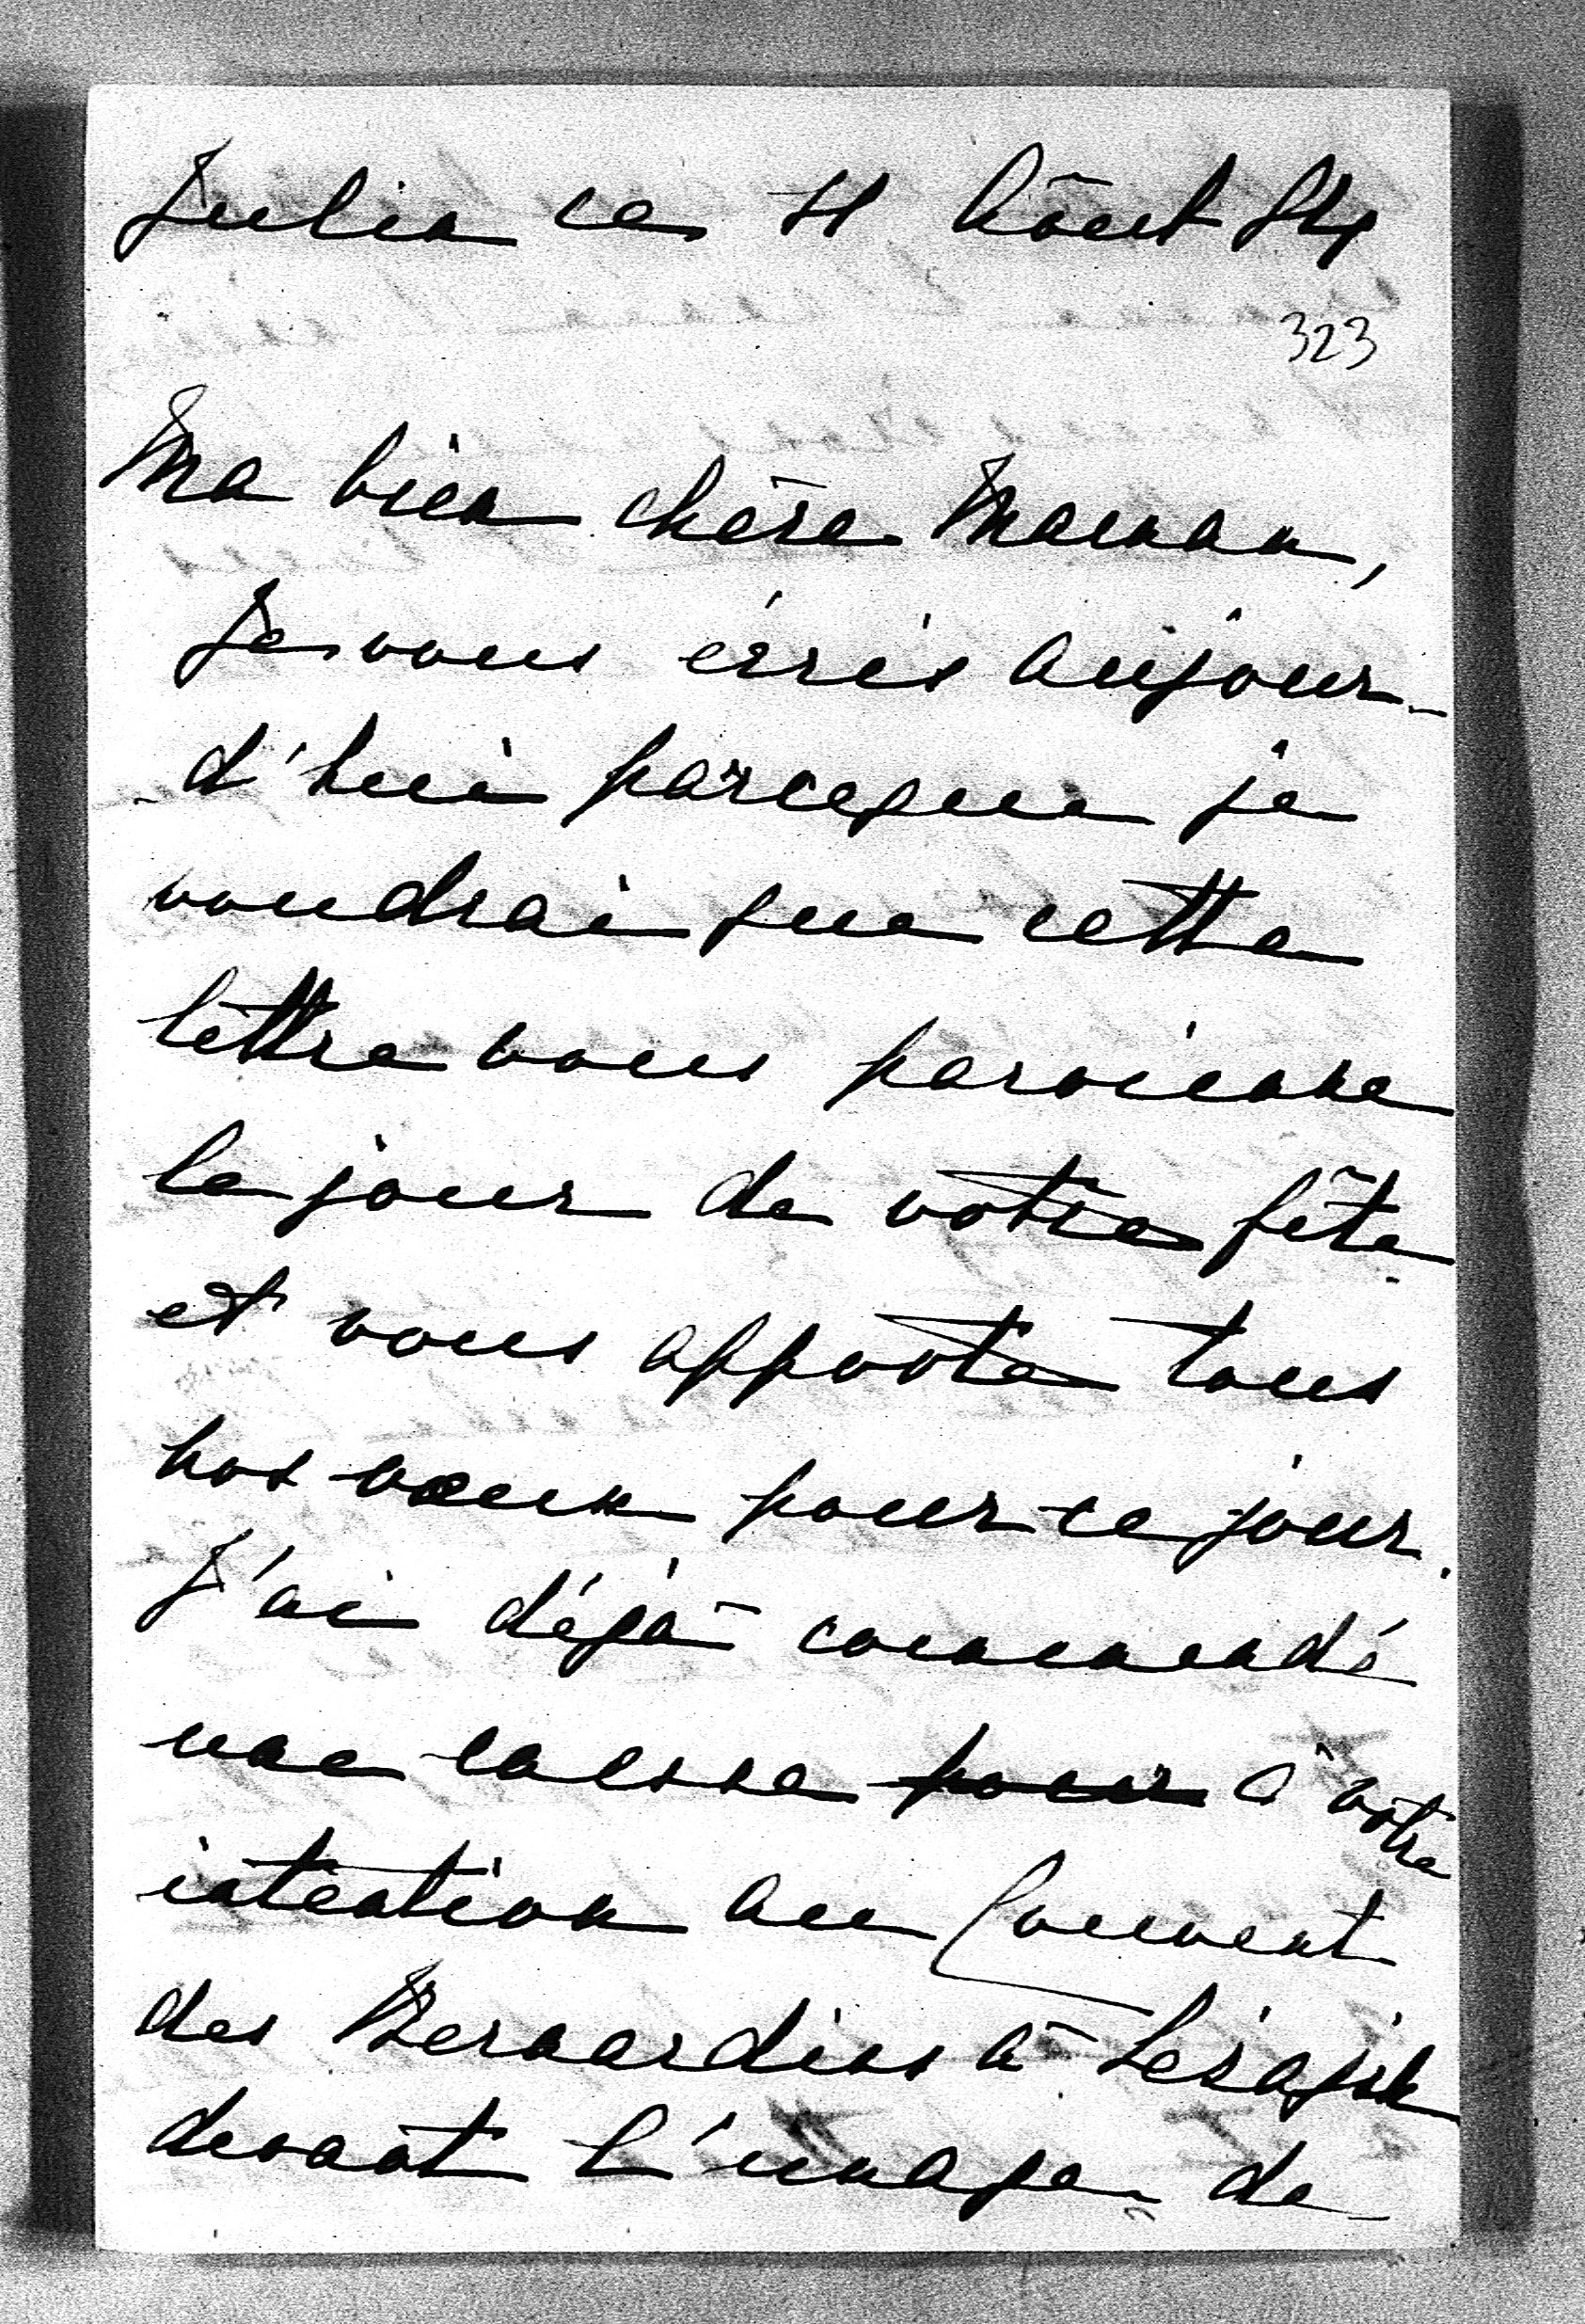 Julin ce 11 Août 84
323
Ma bien chère Maman,
Je vous écris aujour-
d'hui parceque je
voudrai que cette
lettre vous parvienne
le jour de votre fête
et vous apporte tous
nos vœux pour ce jour.
J'ai déjà commendé
une messe pour à votre
intention au Couvent
des Bernardins à Leżajsk
devant l'image de